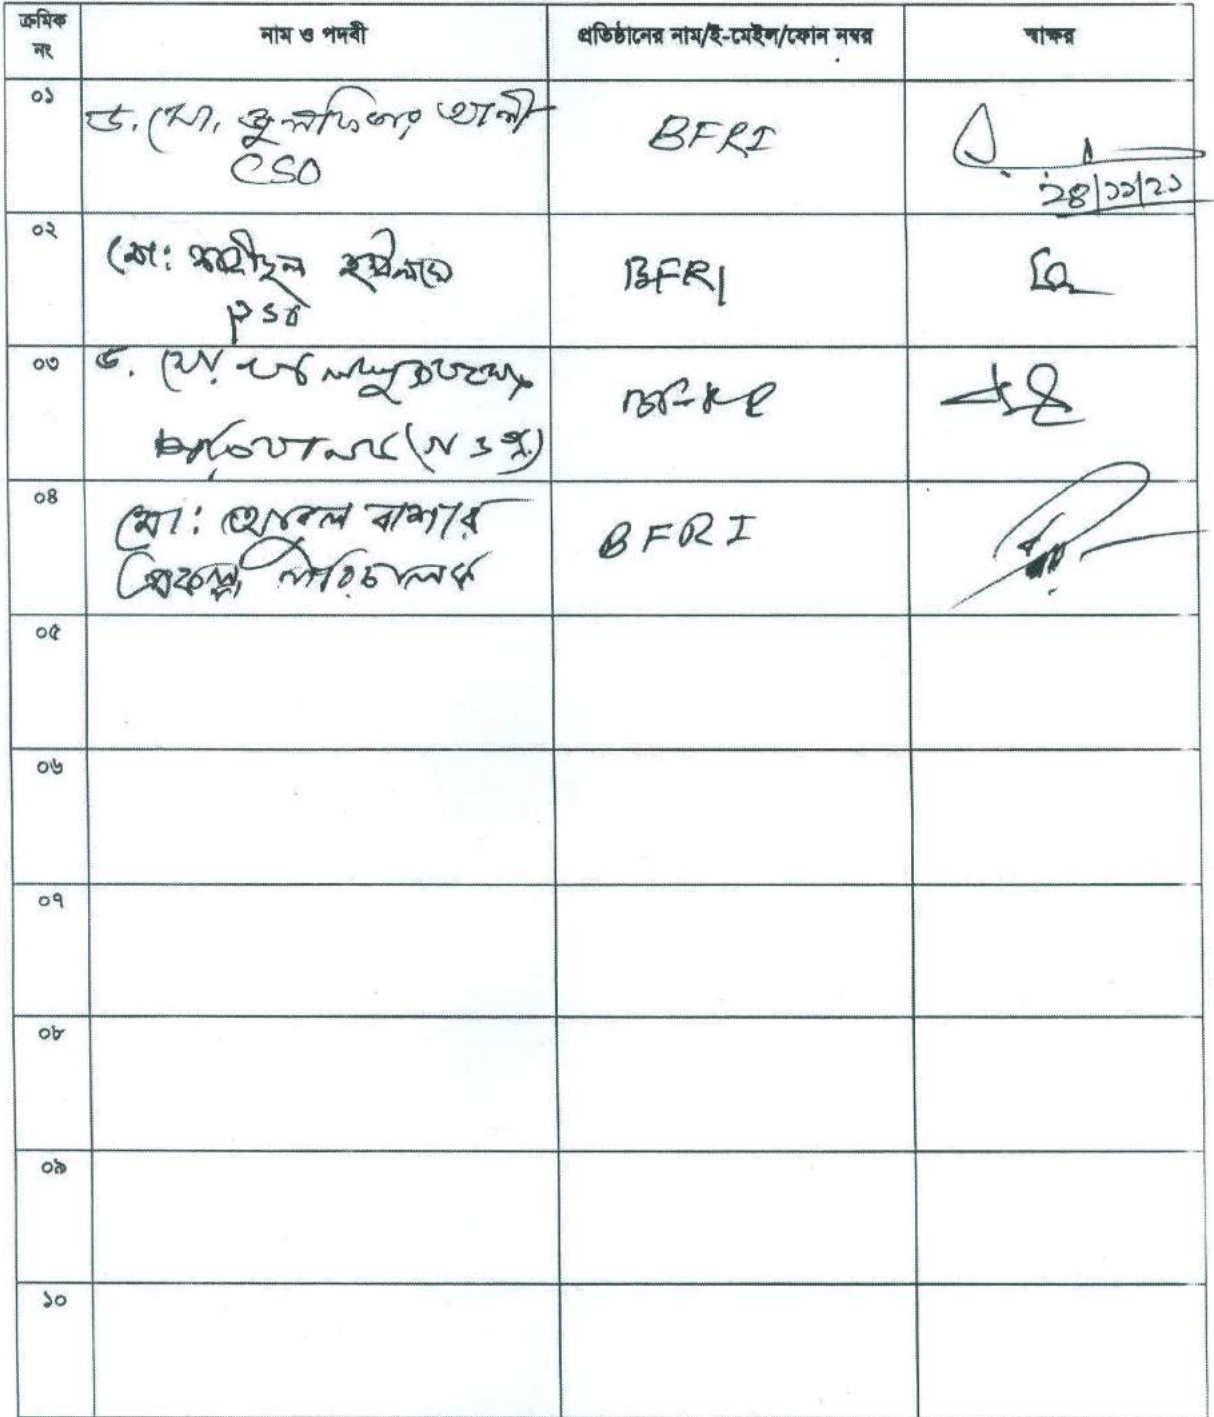 ক্রমিক নং
নাম ও পদবী
প্রতিষ্ঠানের নাম/ই-মেইল/ফোন নম্বর
স্বাক্ষর
০১
ড. মো. জুলফিকার আলী
CSO
BFRI
২৪/১১/২১
০২
মো: শহীদুল ইসলাম
PSO
BFRI
০৩
ড. মো.
পরিচালক
BFRI
০৪
মো: আবুল বাশার
প্রকল্প পরিচালক
BFRI
০৫
০৬
০৭
০৮
০৯
১০